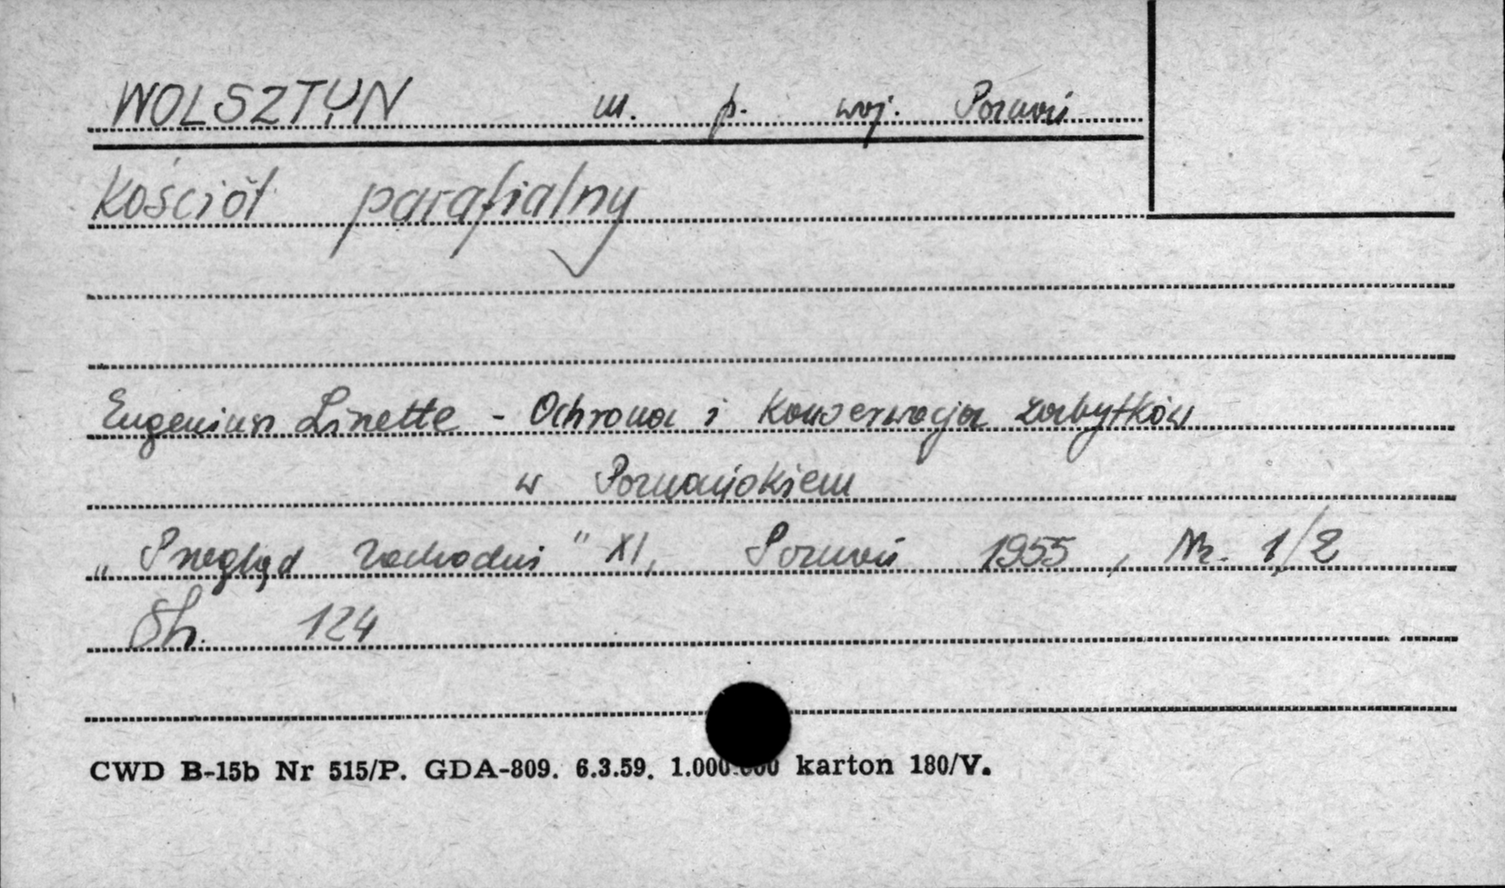 WOLSZTYN m. p. woj. Poznań
Kościół parafialny
Eugeniusz Linette - Ochrona i Konserwacja zabytków
w Poznańskiem
„Przegląd Zachodni" XI, Poznań 1955, Nr. 1/2
Str. 124
CWD B-15b Nr 515/P. GDA-809. 6.3.59. 1.000.000 karton 180/V.